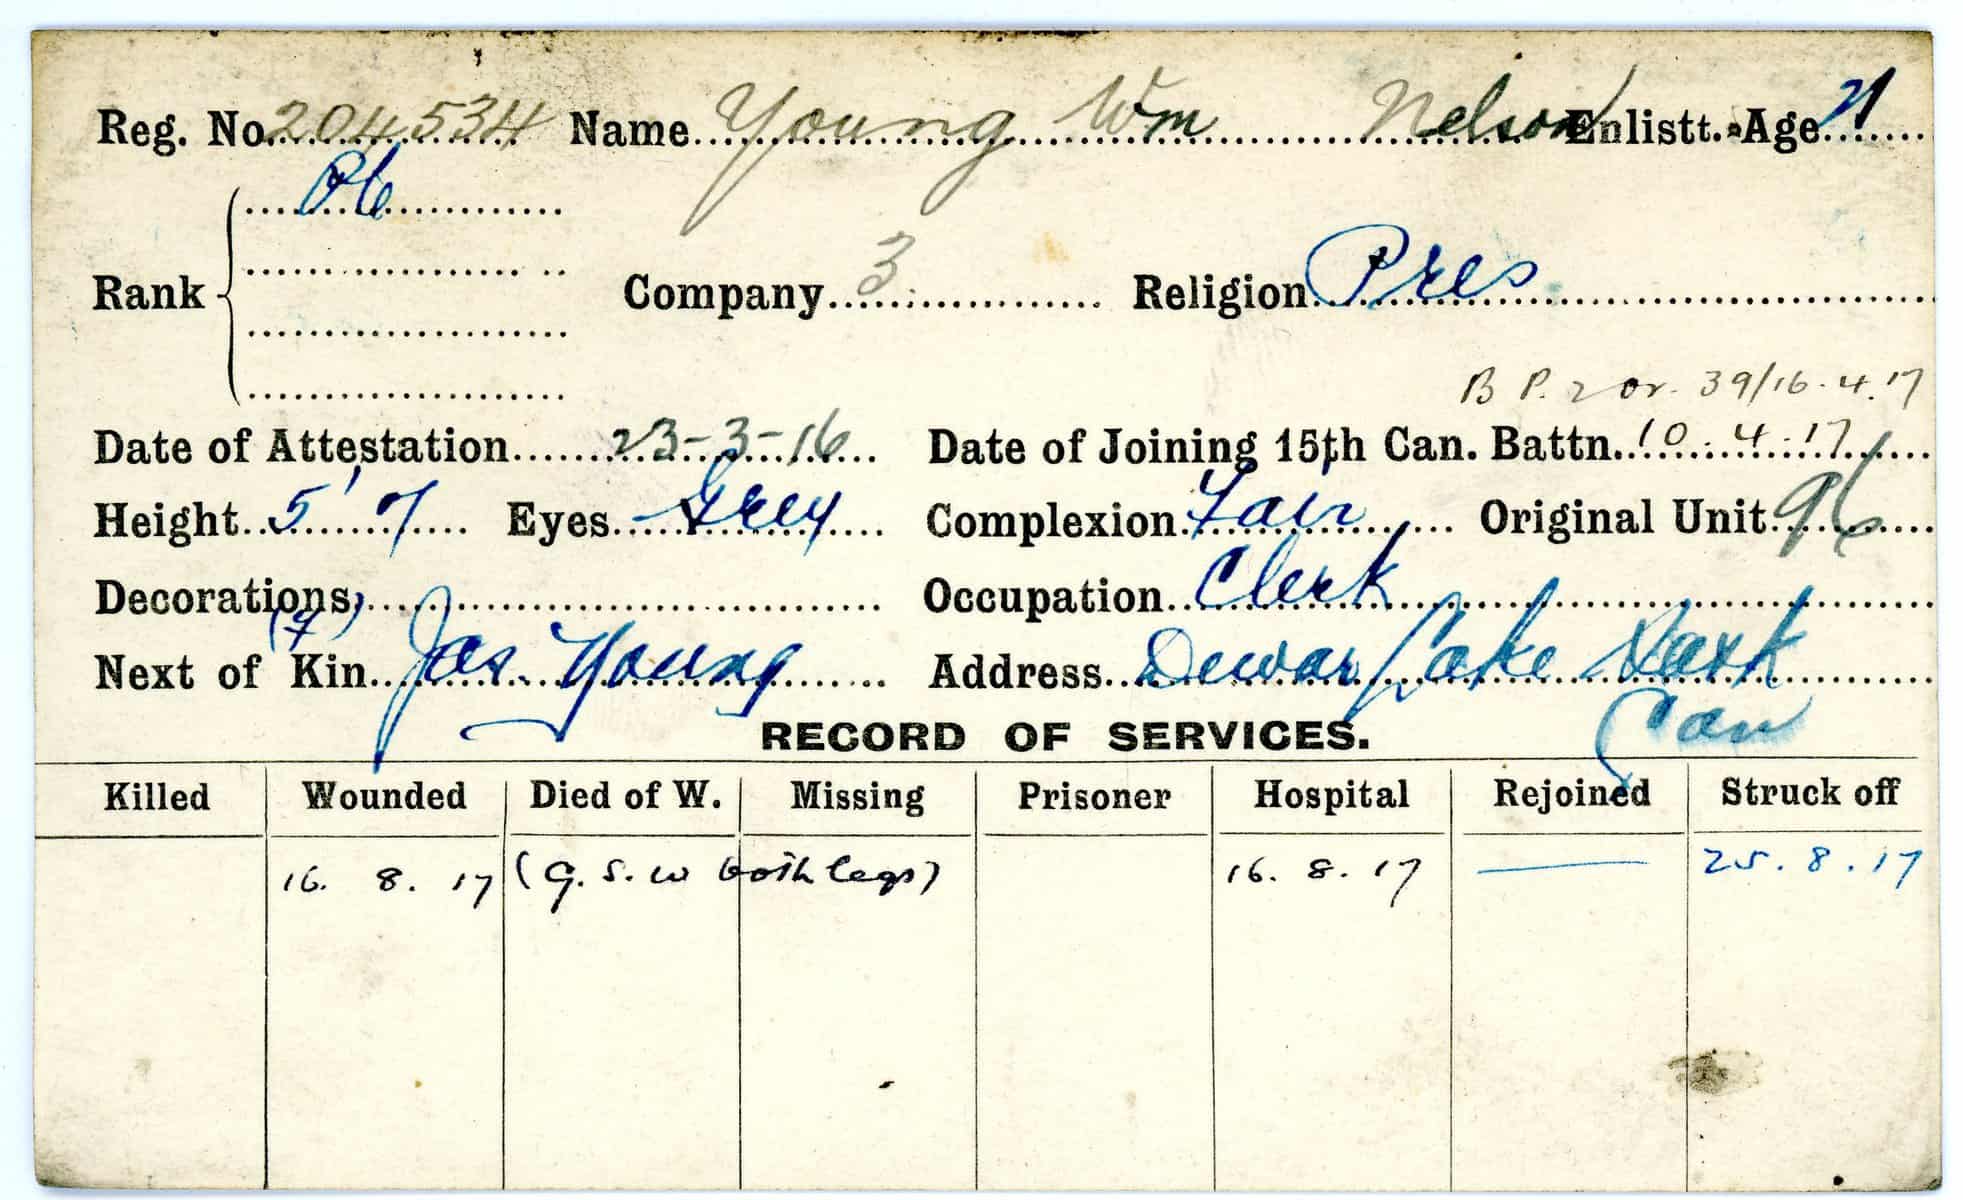 Reg. No. 204534 Name Young Wm Nelson Enlistt. Age 21
Pte
Rank Company 3 Religion Pres
B P. 2 or. 39/16.4.17
Date of Attestation 23-3-16 Date of Joining 15th Can. Battn. 10.4.17
Height 5' 7 Eyes Grey Complexion Fair Original Unit 96
Decorations Occupation Clerk
(f)
Next of Kin Jas. Young Address Dewar Lake Sask
Can
RECORD OF SERVICES.
Killed Wounded Died of W. Missing Prisoner Hospital Rejoined Struck off
16. 8. 17 (G.S.W both legs) 16. 8. 17 — 25.8.17